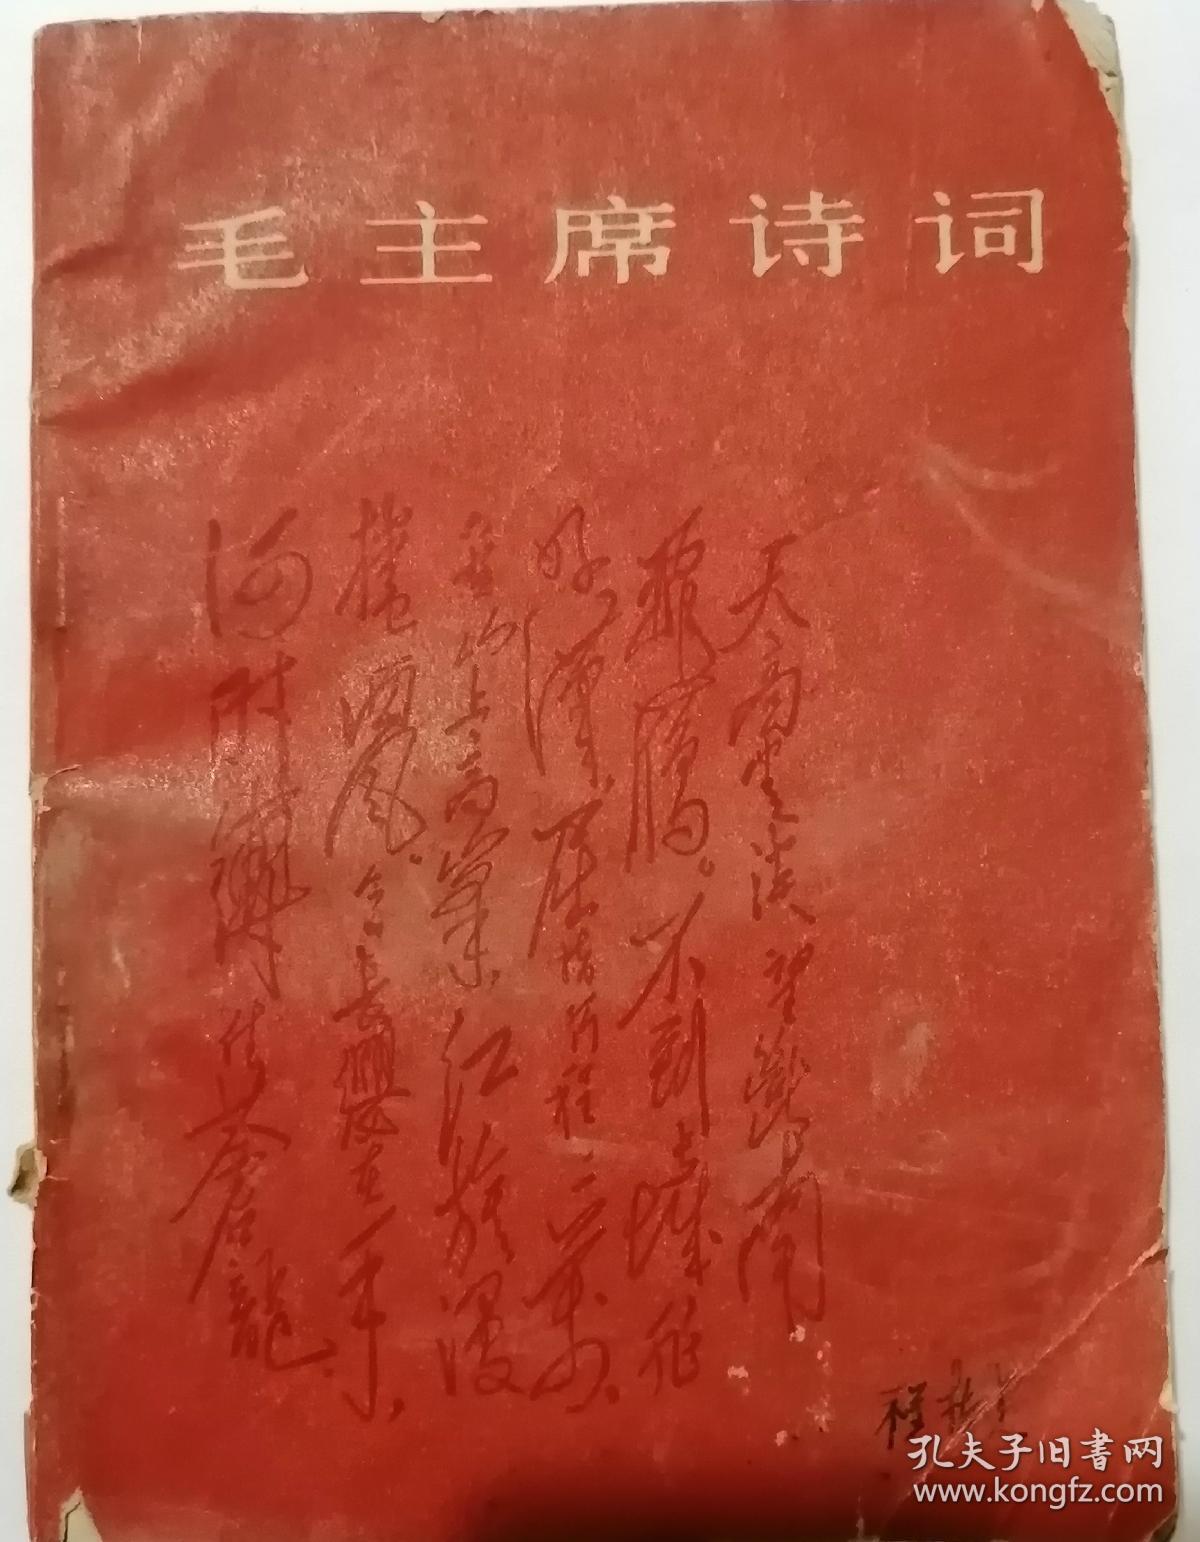 毛主席诗词
天高雲淡望斷南
飛鴈。不到長城非
好漢、屈指行程二萬、
六盤山上高峯、红旗漫
捲西风。今日長纓在手、
何时縛住蒼龍
程
孔夫子旧书网
www.kongfz.com